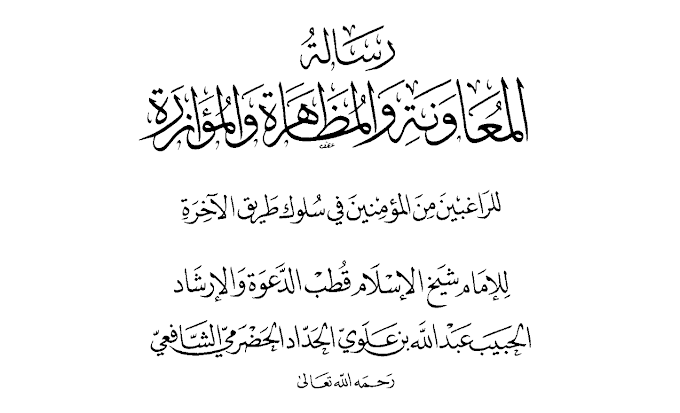 رِسَالَةُ
المُعَاوَنَةِ وَالمُظَاهَرَةِ وَالمُؤَازَرَةِ
للرَاغبينَ مِنَ المؤمِنينَ في سُلوك طَريق الآخِرَةِ
لِلإمَام شيَخ الإسْلَام قُطبْ الدَّعوَة وَالإرشَاد
الحَبيَب عَبْد اللَّه بن عَلَويّ الحَدّاد الحَضْرَميّ الشَّافعيّ
رَحمَه الله تعَالىٰ